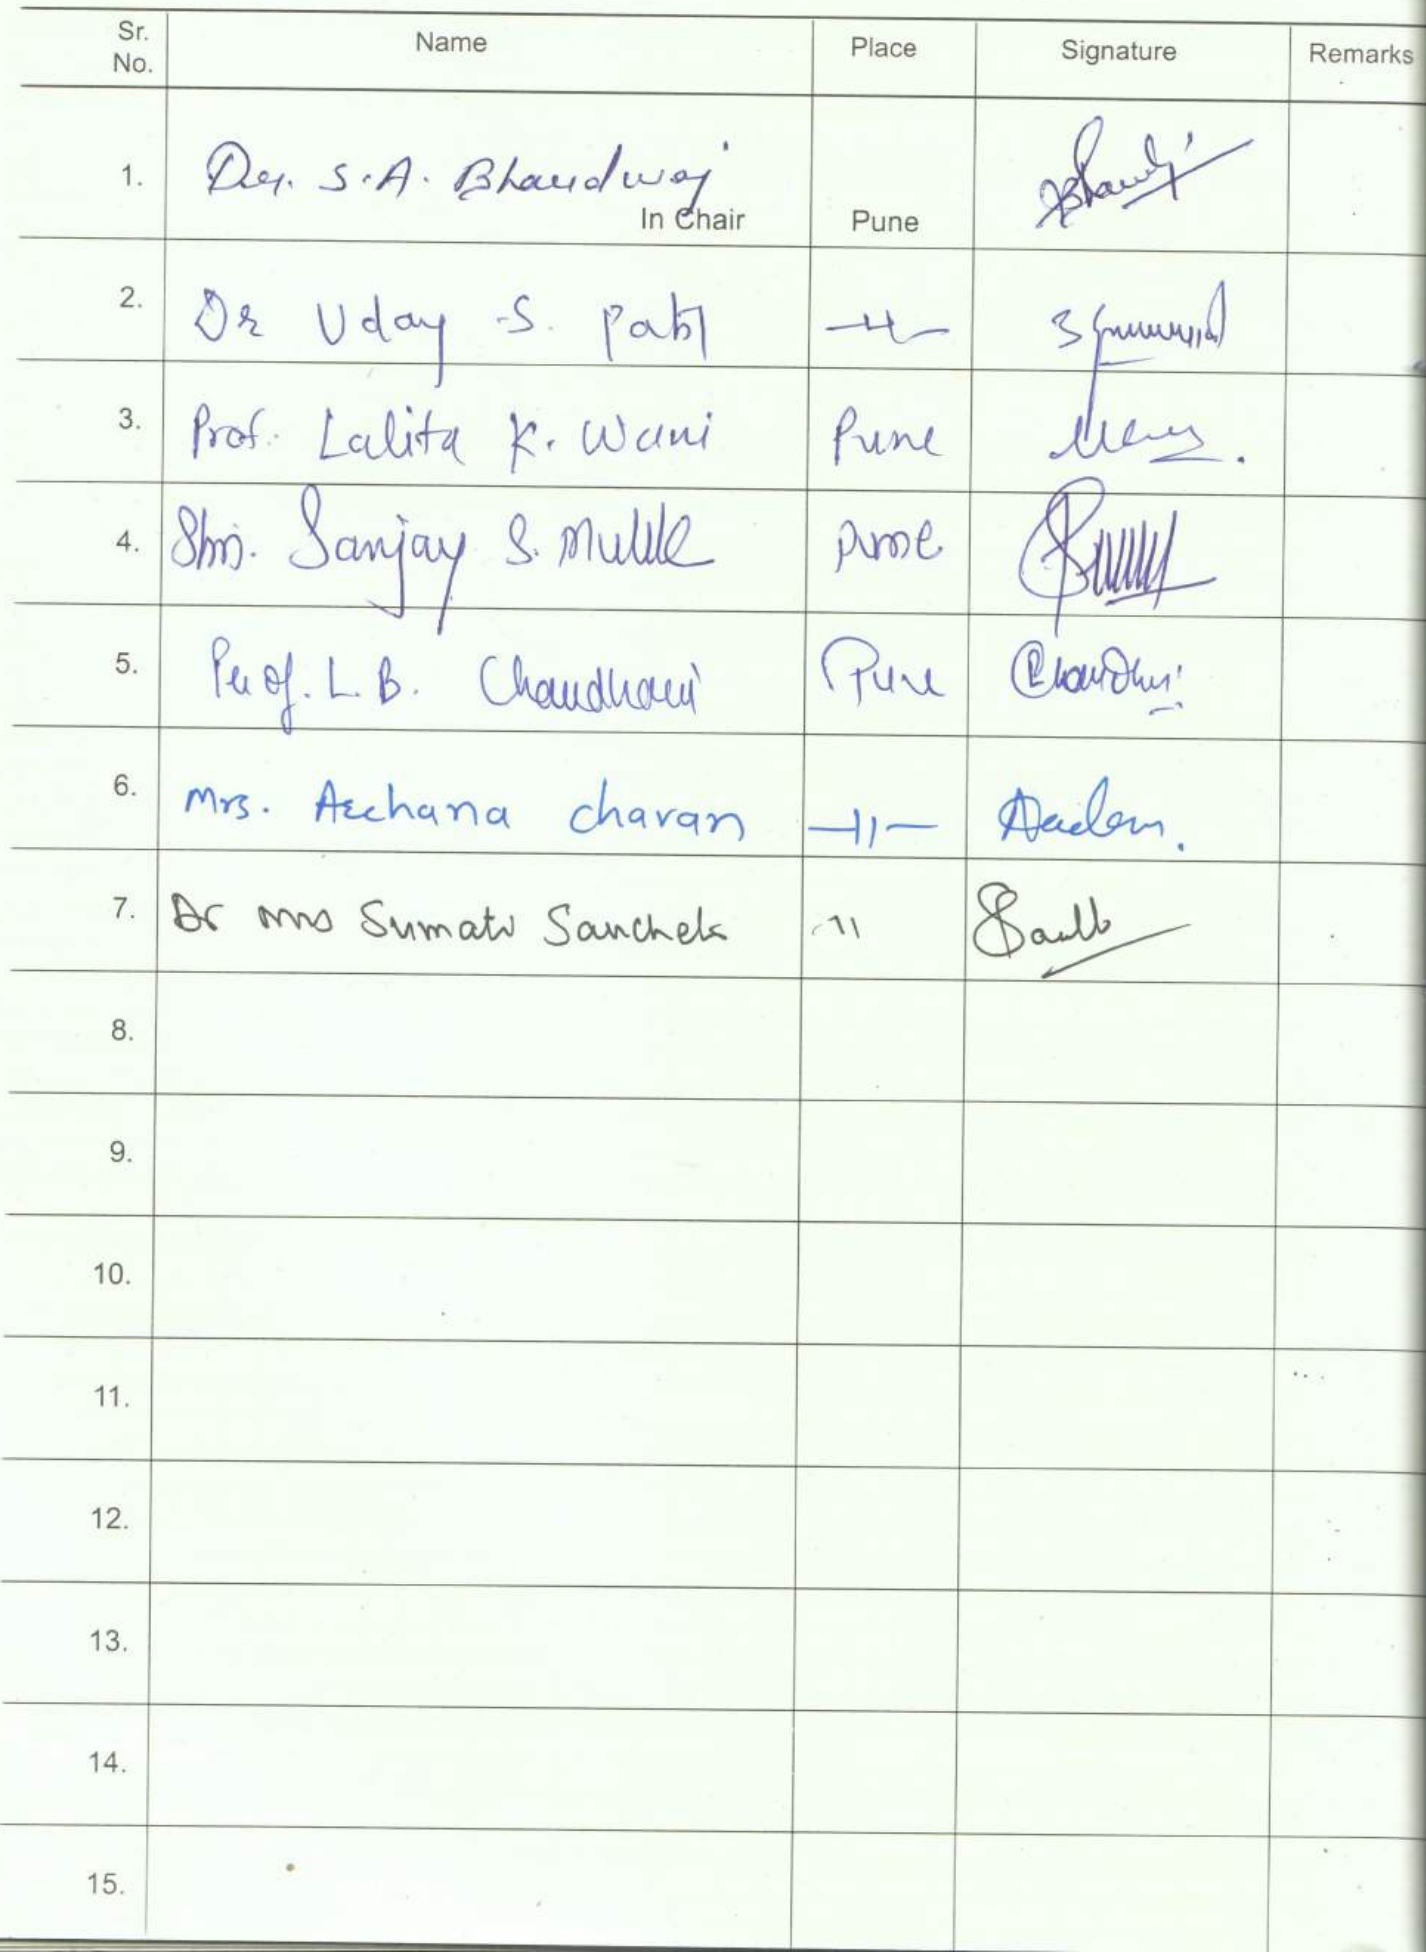 Sr. No. Name Place Signature Remarks
1. Dr. S.A. Bhardwaj
In Chair Pune
2. Dr Uday S. Patil —11—
3. Prof. Lalita K. Wani Pune
4. Shri. Sanjay S. Mulik Pune
5. Prof. L. B. Chaudhari Pune Chaudhari
6. Mrs. Archana Chavan —11—
7. Dr Mrs Sumati 11
8.
9.
10.
11.
12.
13.
14.
15.